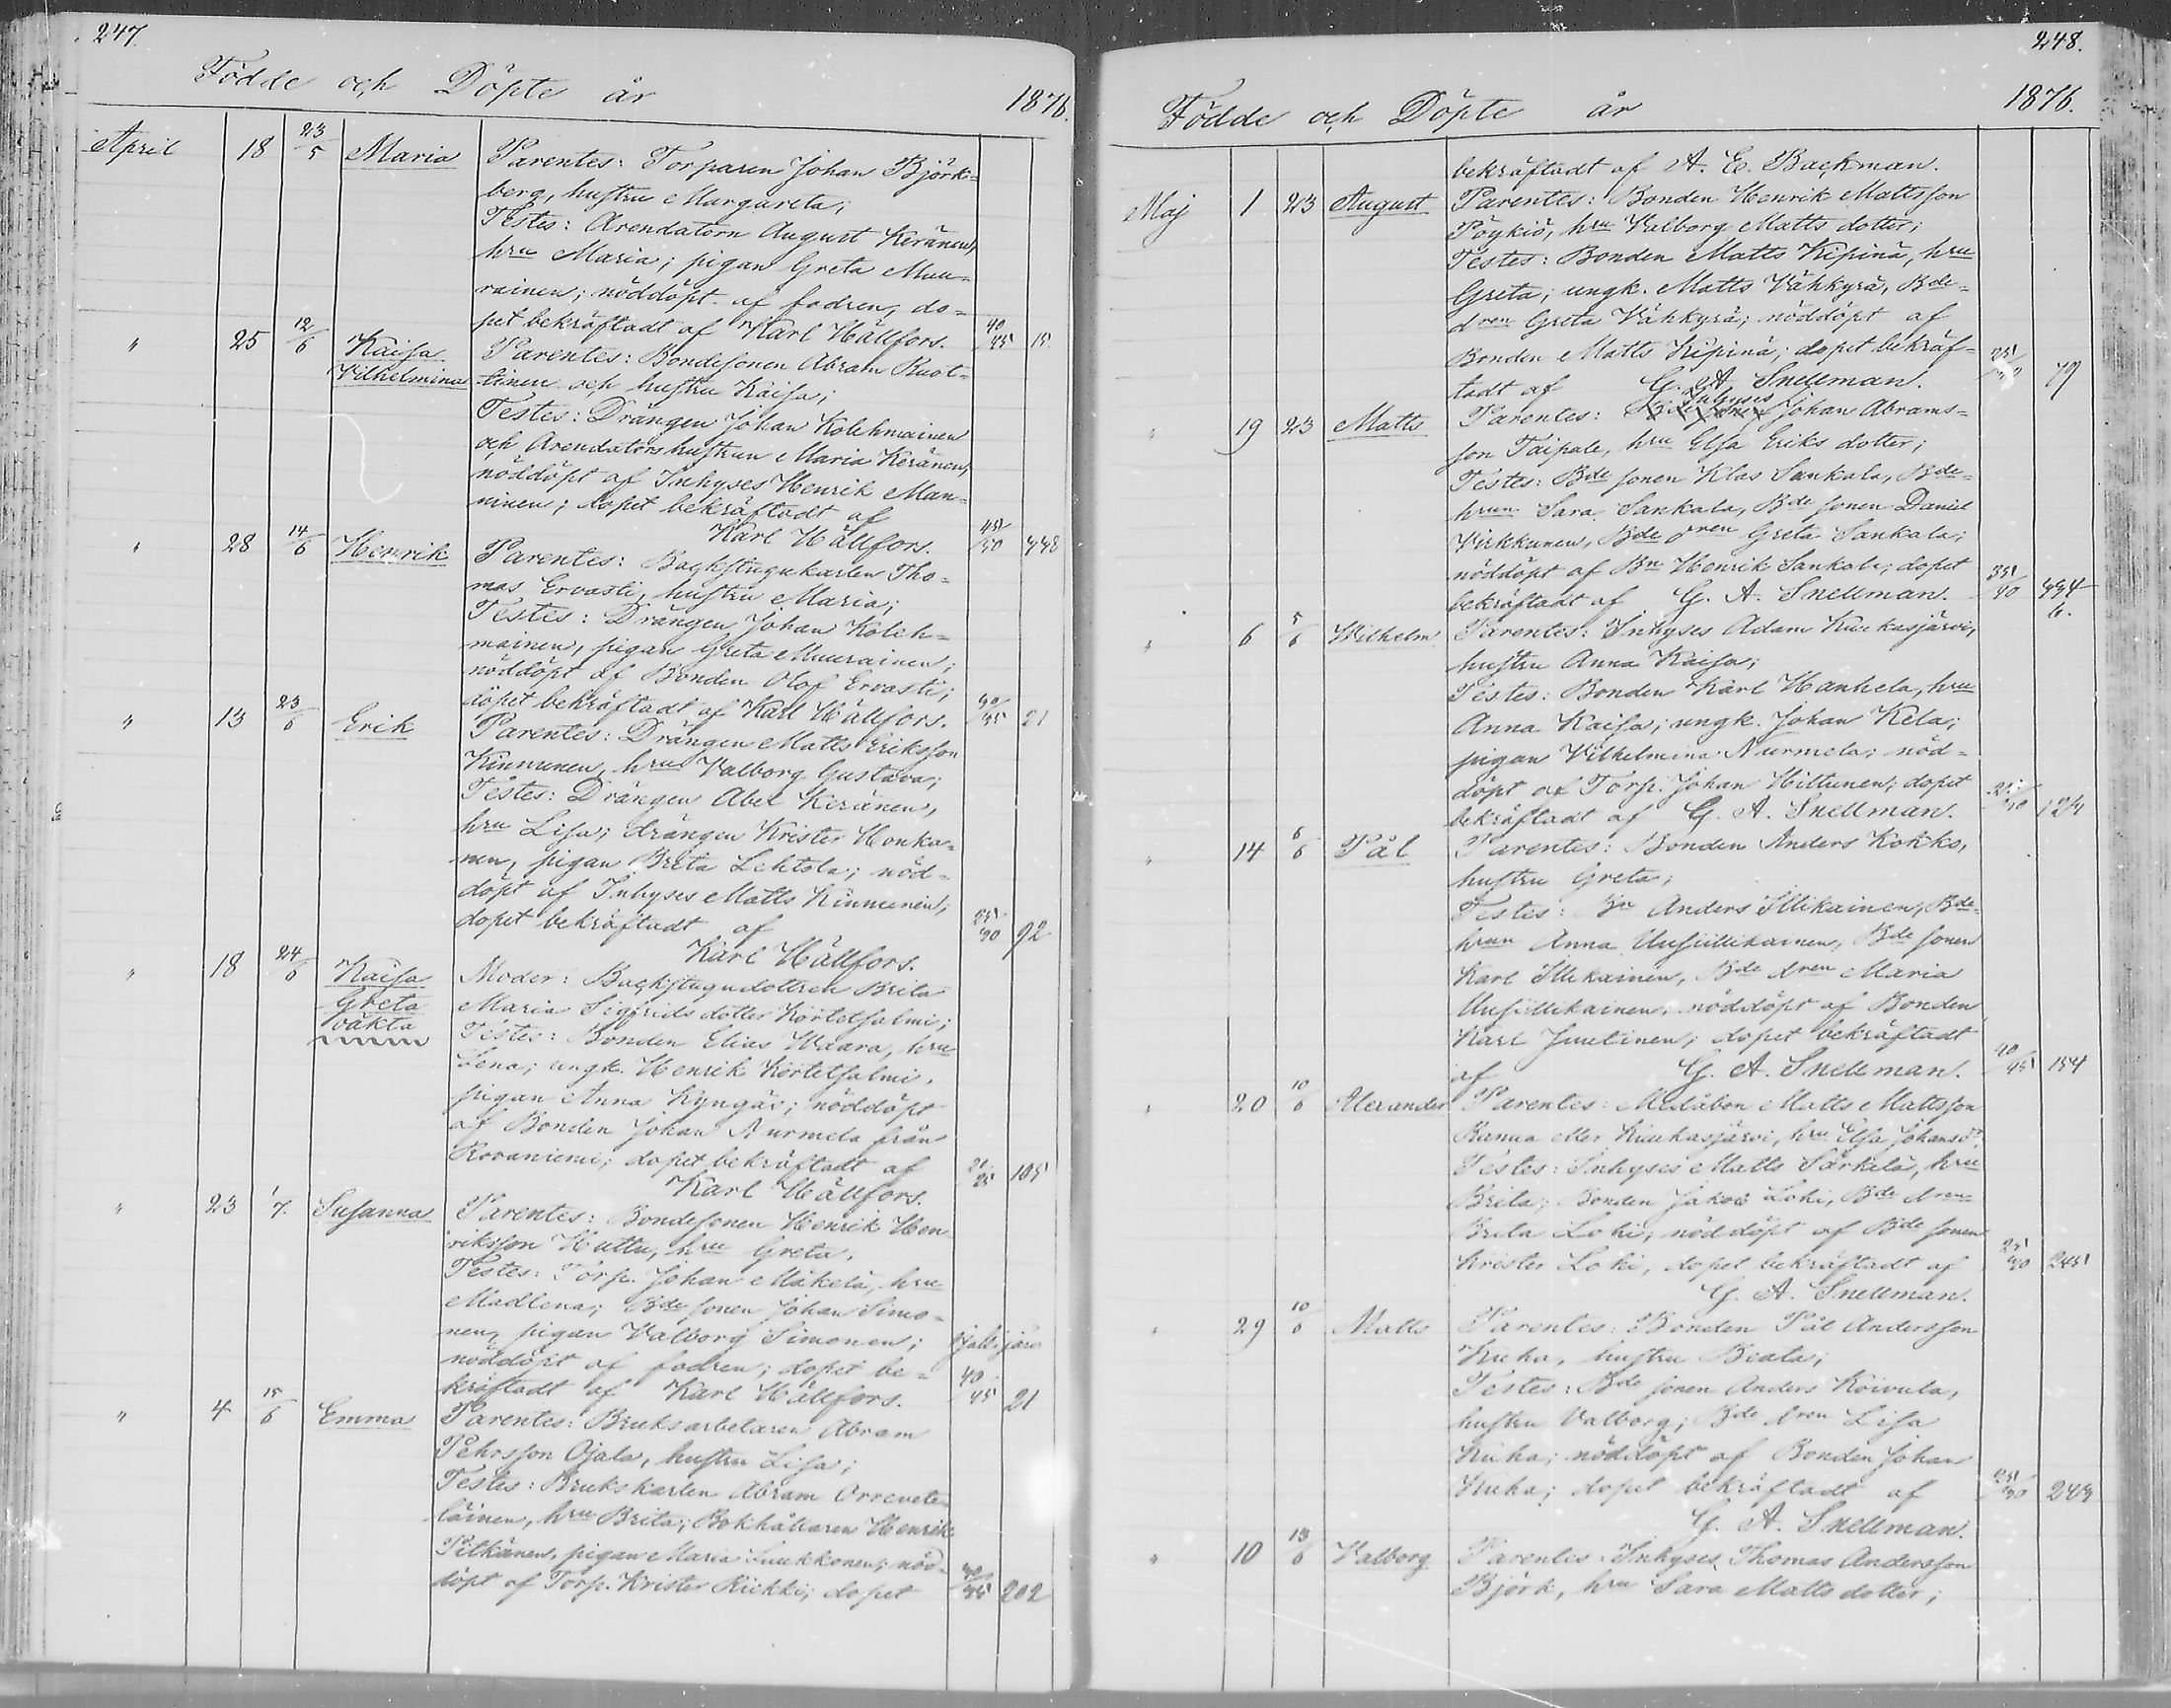 247.
Födde och Döpte år 1876.
April 18 23/5 Maria Parentes: Torparen Johan Björk=
berg, hustru Margareta;
Testes: Arendatorn August Keränen,
hru Maria; pigan Greta Muu=
rainen; nöddöpt af fadren, do=
pet bekräftadt af Karl Hällfors. 40/45 15
" 25 12/6 Kaisa Parentes: Bondesonen Abram Ruot=
Vilhelmina tinen och hustru Kaisa;
Testes: Drängen Johan Kolehmainen
och Arendators hustrun Maria Keränen,
nöddöpt af Inhyses Henrik Man=
ninen; dopet bekräftadt af
Karl Hällfors. 448
" 28 14/6 Henrik Parentes: Backstugukarlen Tho=
mas Ervasti, hustru Maria;
Testes: Drängen Johan Koleh=
mainen, pigan Greta Muurainen;
nöddöpt af Bonden Olof Ervasti;
dopet bekräftadt af Karl Hällfors. 40/45 21
" 13 23/6 Erik Parentes: Drängen Matts Eriksson
Kinnunen, hru Valborg Gustava;
Testes: Drängen Abel Keränen,
hru Lisa; drängen Krister Honka=
nen, pigan Brita Lehtola; nöd=
döpt af Inhyses Matts Kinnunen;
dopet bekräftadt af 92
Karl Hällfors.
" 18 24/6 Kaisa Moder: Backstugudottren Brita
Greta Maria Sigfrids dotter Körtetsalmi;
oäkta Testes: Bonden Elias Waara, hru
Lena; ungk. Henrik Körtetsalmi,
pigan Anna Kyngäs; nöddöpt
af Bonden Johan Nurmela från
Rovaniemi; dopet bekräftadt af 105
Karl Hällfors.
" 23 1/7. Susanna Parentes: Bondesonen Henrik Hen
riksson Huttu, hru Greta;
Testes: Torp. Johan Mäkelä, hru
Madlena; Bde sonen Johan Simo=
nen, pigan Valborg Simonen;
nöddöpt af fadren; dopet be=
kräftadt af Karl Hällfors. 40/45 21
" 4 15/6 Emma Parentes: Bruksarbetaren Abram
Pehrsson Ojala, hustru Lisa;
Testes: Brukskarlen Abram
läinen, hru Brita; Bokhållaren Henrik
Pitkänen, pigan Maria Luukkonen; nöd=
döpt af Torp. Krister Riekki; dopet 40/45 202
248.
Födde och Döpte år 1876.
bekräftadt af A. E. Backman.
Maj 1 23 August Parentes: Bonden Henrik Mattsson
Pöykiö, hru Valborg Matts dotter;
Testes: Bonden Matts Kipinä, hru
Greta; ungk. Matts Vähkyrä, Bde=
dren Greta Vähkyrä; nöddöpt af
Bonden Matts Kipinä; dopet bekräf=
tadt af G. A. Snellman. 79
" 19 23 Matts Parentes: Inhyses Johan Abrams=
son Taipale, hru Elsa Eriks dotter;
Testes: Bde sonen Klas Sankala, Bde=
hrun Sara Sankala, Bde sonen Daniel
Virkkunen, Bde dren Greta Sankala;
nöddöpt af Bn Henrik Sankala; dopet
bekräftadt af G. A. Snellman. 494
6.
" 6 5/6 Wilhelm Parentes: Inhyses Adam Kuukasjärvi,
hustru Anna Kaisa;
Testes: Bonden Karl Hanhela, hru
Anna Kaisa; ungk. Johan Kela;
pigan Vilhelmina Nurmela; nöd=
döpt af Torp. Johan Hiltunen; dopet
bekräftadt af G. A. Snellman.
" 14 6/6 Pål Parentes: Bonden Anders Kokko,
hustru Greta;
Testes: Bn Anders Illikainen, Bde=
hrun Anna Uusiillikainen, Bde sonen
Karl Illikainen, Bde dren Maria
Uusiillikainen; nöddöpt af Bonden
Karl Juutinen; dopet bekräftadt
af G. A. Snellman. 40/45 154
" 20 10/6 Alexander Parentes: Medåbon Matts Mattsson
Ranua eller Kuukasjärvi, hru Elsa Johans dr.
Testes: Inhyses Matts Särkelä, hru
Brita; Bonden Jakob Lohi, Bde dren
Brita Lohi; nöddöpt af Bde sonen
Krister Lohi, dopet bekräftadt af 245
G. A. Snellman.
" 29 10/6 Matts Parentes: Bonden Pål Andersson
Kuha, hustru Beata;
Testes: Bde sonen Anders Koivula,
hustru Valborg; Bde dren Lisa
Kuha; nöddöpt af Bonden Johan
Kuha; dopet bekräftadt af
G. A. Snellman.
" 10 13/6 Valborg Parentes: Inhyses Thomas Andersson
Björk, hru Sara Matts dotter;